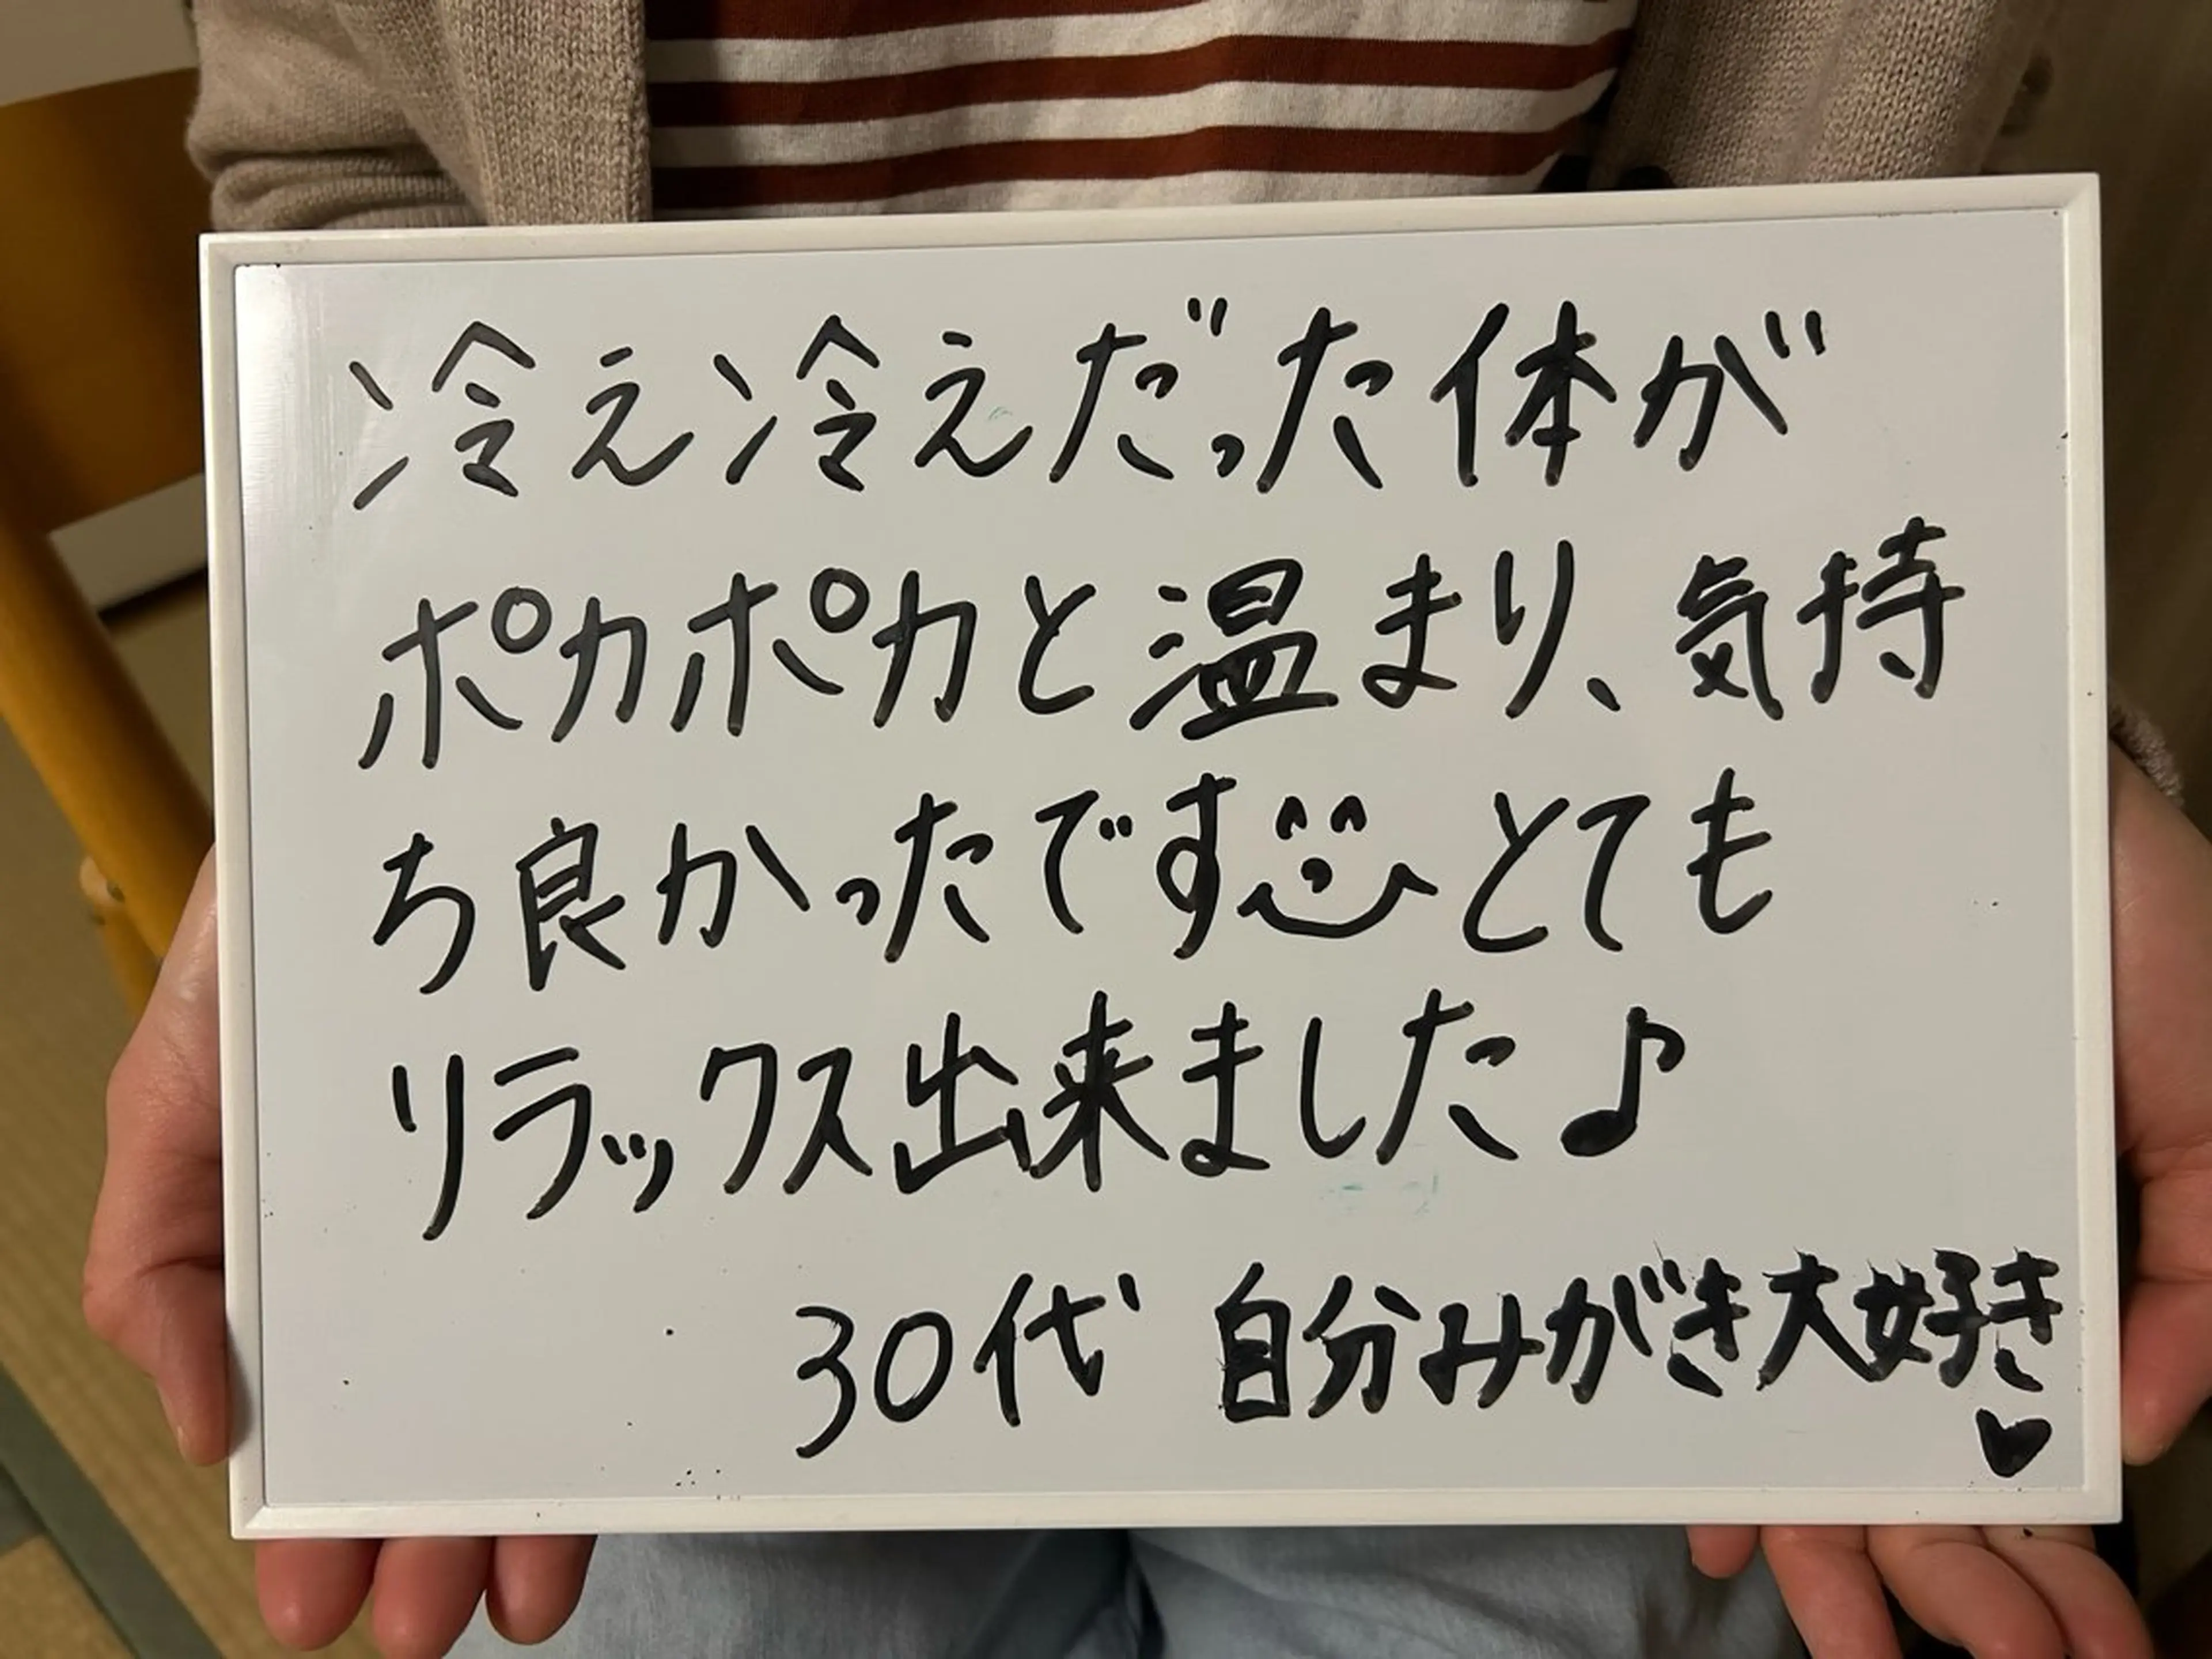 冷え冷えだった体が
ポカポカと温まり、気持
ち良かったです とても
リラックス出来ました♪
30代 自分みがき大好き
♥